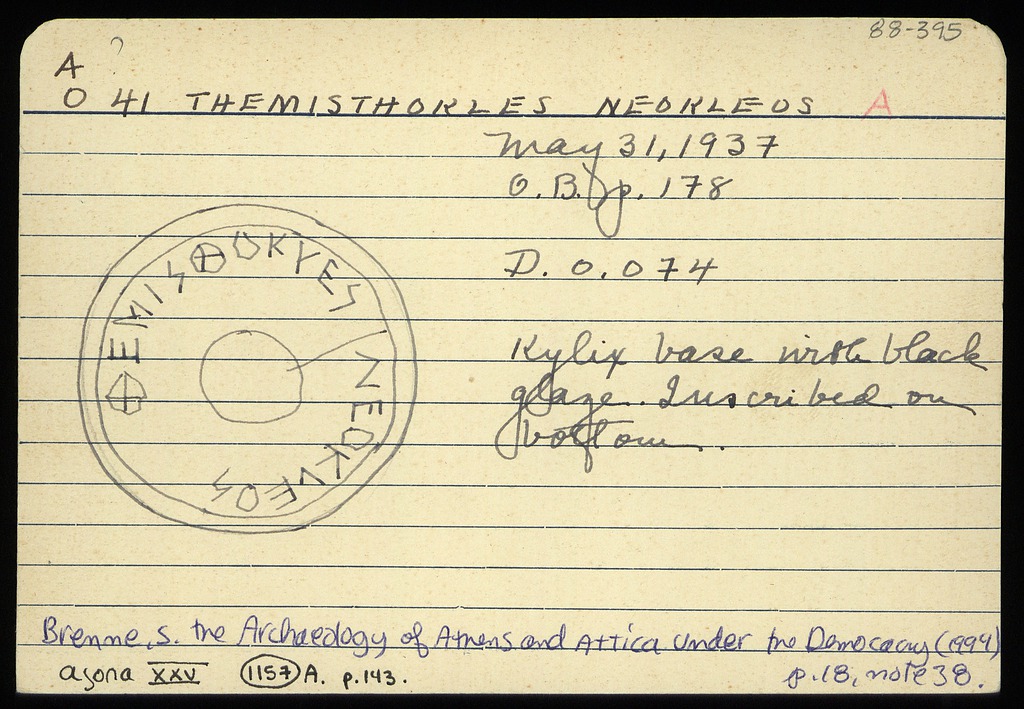 88-395
A ?
O 41 THEMISTHOKLES NEOKLEOS A
May 31, 1937
O.B. p. 178
D. 0.074
Kylix base with black
glaze. Inscribed on
bottom.
ΘEMISΘOKLES
NEOKLEOS
Brenne, S. The Archaeology of Athens and Attica under the Democracy (1994)
p.18, note 38.
agora XXV 1157 A. p.143.